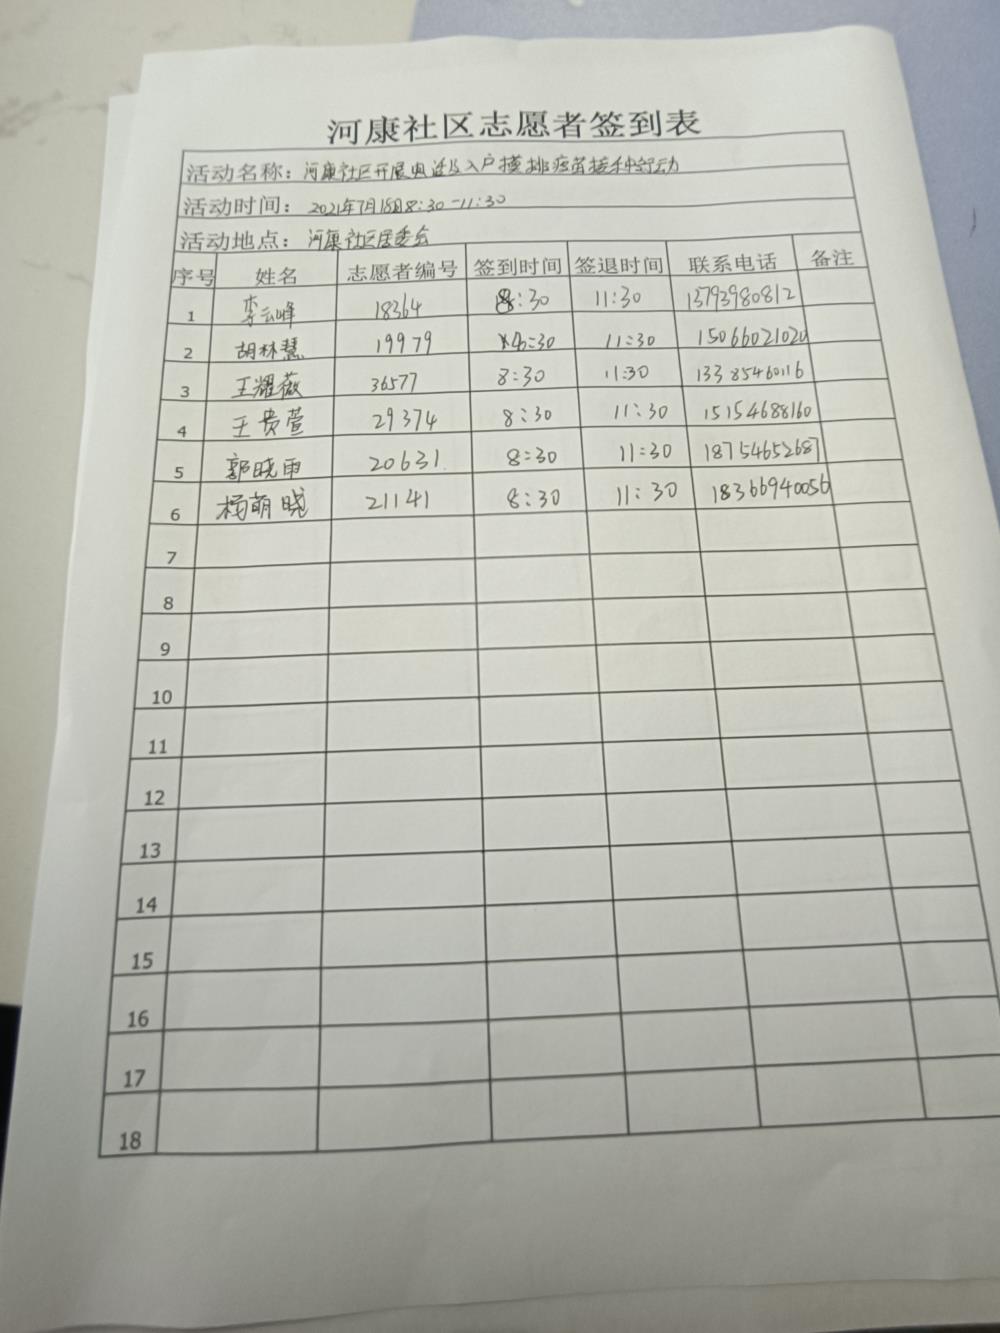 河康社区志愿者签到表
活动名称：河康社区开展电话及入户摸排疫苗接种活动
活动时间：2021年7月18日8:30-11:30
活动地点：河康社区居委会
序号 姓名 志愿者编号 签到时间 签退时间 联系电话 备注
1 李云峰 18364 8:30 11:30 13793980812
2 胡林慧 19979 :30 11:30 15066021020
3 王耀薇 36577 8:30 11:30 13385460116
4 王贵萱 29374 8:30 11:30 15154688160
5 郭晓雨 20631 8:30 11:30 18754652687
6 杨萌晓 21141 8:30 11:30 18366940056
7
8
9
10
11
12
13
14
15
16
17
18